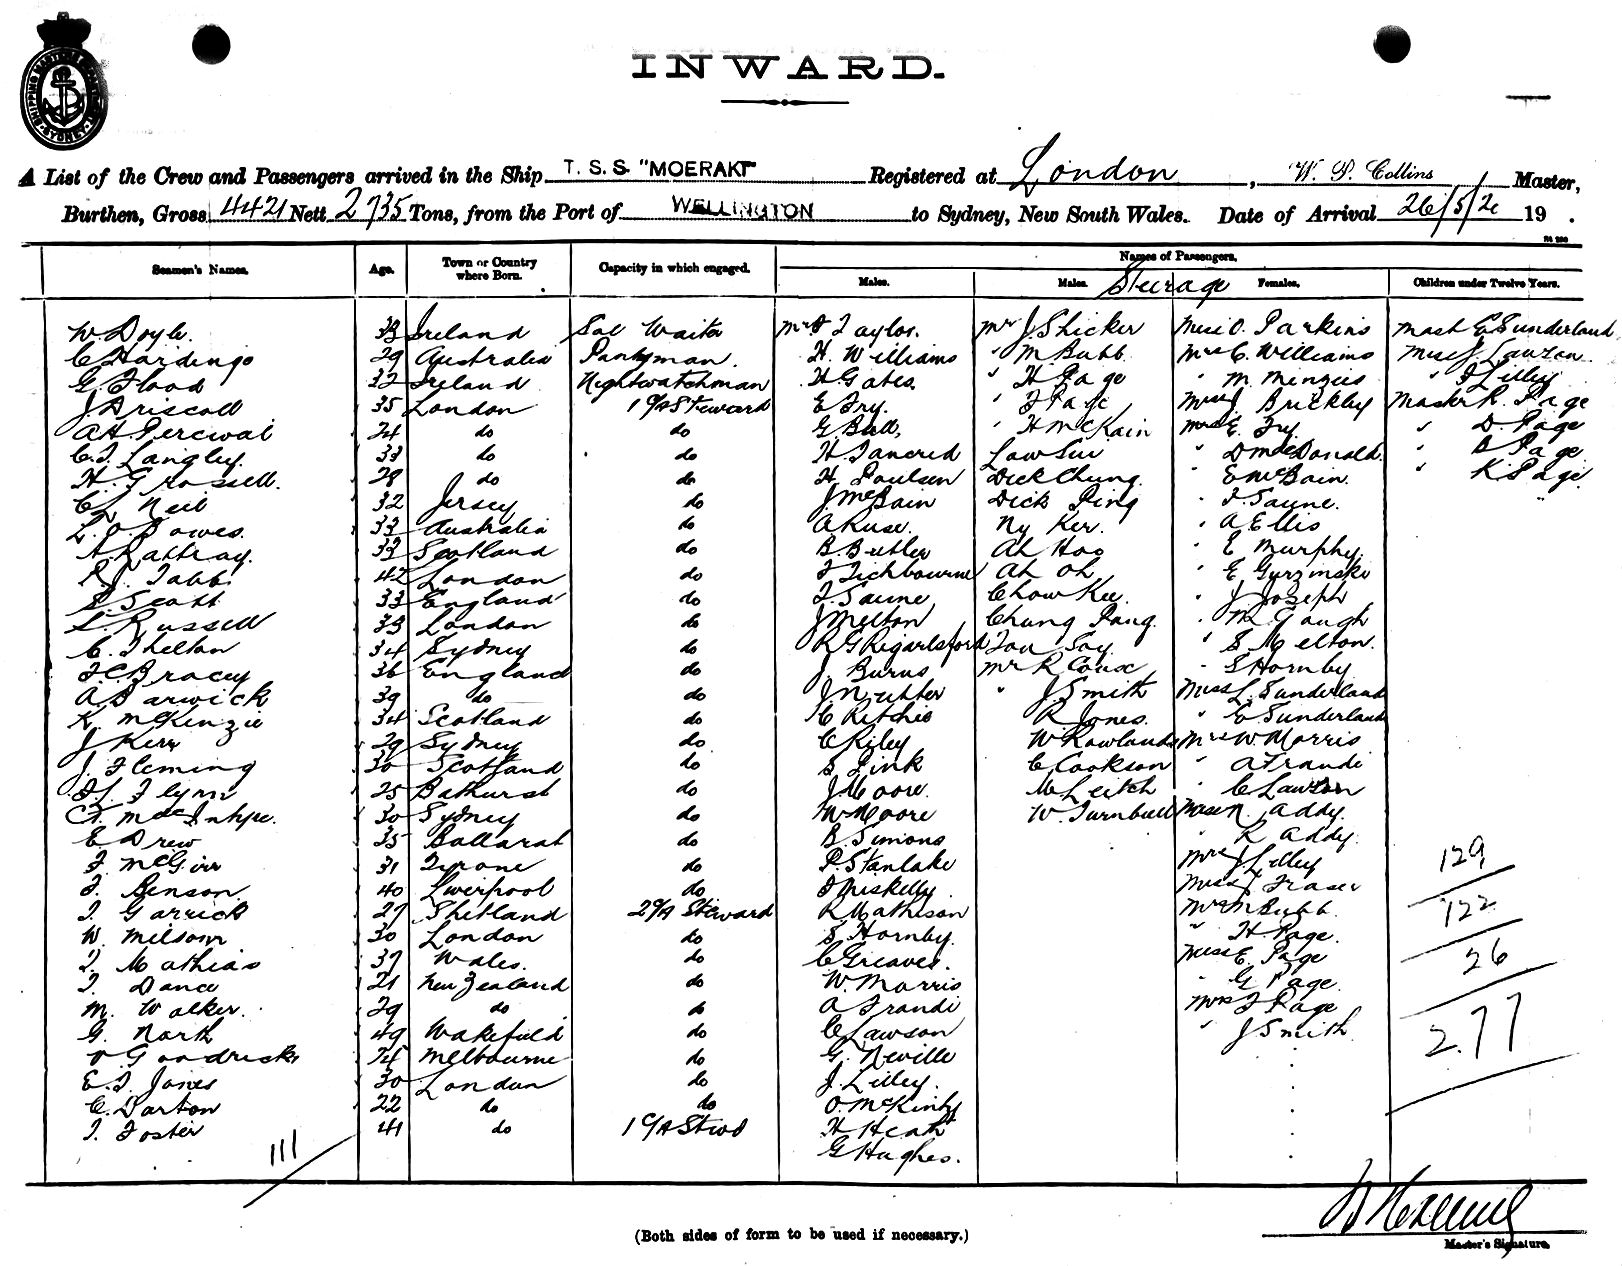 SHIPPING MASTER'S OFFICE SYDNEY
INWARD.
A List of the Crew and Passengers arrived in the Ship T.S.S. "MOERAKI" Registered at London, W. P. Collins Master,
Burthen, Gross 4421 Nett 2735 Tons, from the Port of WELLINGTON to Sydney, New South Wales. Date of Arrival 26/5/20 19 .
Names of Passengers.
Seamen's Names. Age. Town or Country where Born. Capacity in which engaged. Males. Males. Steerage Females. Children under Twelve Years.
W Doyle. 33 Ireland Sal Waiter Mr J Taylor. Mr J. Shicker Miss O. Parkins Mast G Sunderland
C Hardingo 29 Australia Pantryman. H. Williams " M Bubb. Mrs C. Williams Miss J. Lawson.
G Flood 32 Ireland Nightwatchman H Gates. " H Page " M. Menzies " J Lilley
J Driscoll 35 London 1 C/A Steward E Fry. " F Page Miss J Brickley Master R. Page
A H Percival 24 do do G Bull, " H McKain Mrs E. Fry. " D. Page
C. J. Langley. 33 do do H. Tancred Low Sui " D McDonald. " B Page
H. Grossell. 28 do do H. Poulsen Dick Chung. " E McBain. " K Page
C Neil 32 Jersey do J McBain Dick Ping " F Saune.
L. O. Bowes. 33 Australia do A Ruse. Ny Ker. " A Ellis
A Rattray. 33 Scotland do B. Butler Ah Hoo " E Murphy.
R. J. Tabb. 42 London do F Tichbourne Ah Oh. " E Gurzinski
S. Scott 33 England do F. Saune Chow Kee. " J Joseph
L. Russell 33 London do J Melton Chung Pang. " M Gaugh
C. Thelton 34 Sydney do R G Rigarlsford Fou Soy. " S Melton.
F C Bracey 36 England do J. Burns Mr R Coux " S Hornby
A Barwick 39 do do J Nutter " J Smith Miss L. Sunderland
K. McKenzie 34 Scotland do C Ritchie R Jones. " E Sunderland
J Kerr 29 Sydney do C Riley W Rowlands Mrs W Morris
J. Fleming 30 Scotland do S Pink C Cookson " A Frandi
H. Flynn 25 Bathurst do J Moore. M Leitch " C Lawson
30 Sydney do W Moore W. Turnbull Miss N. Addy.
E Drew 35 Ballarat do B. Simons " R Addy.
F McGirr 31 Tyrone do P. Stanlake Mrs J Lilley 129
F. Benson. 40 Liverpool do Miss J Fraser
J. Garrick 27 Shetland 2 C/A Steward R Mathison Mrs M Bubb. 122
W. Milsom 30 London do S Hornby. " H. Page.
J. Mathias 37 Wales. do C Greaves. Miss E. Page 26
J. Dance 21 New Zealand do W. Morris " G Page.
M. Walker. 29 do do A Frandi Mrs F Page
G. North 49 Wakefield do C Lawson " J Smith. 277
Goodricks 24 Melbourne do G. Neville
E. J. Jones 30 London do J. Lilley.
C. Darton 22 do do O. McKinty
J. Foster 41 do 1 C/A Stwd H Heath
111 G Hughes.
(Both sides of form to be used if necessary.)
Master's Signature.